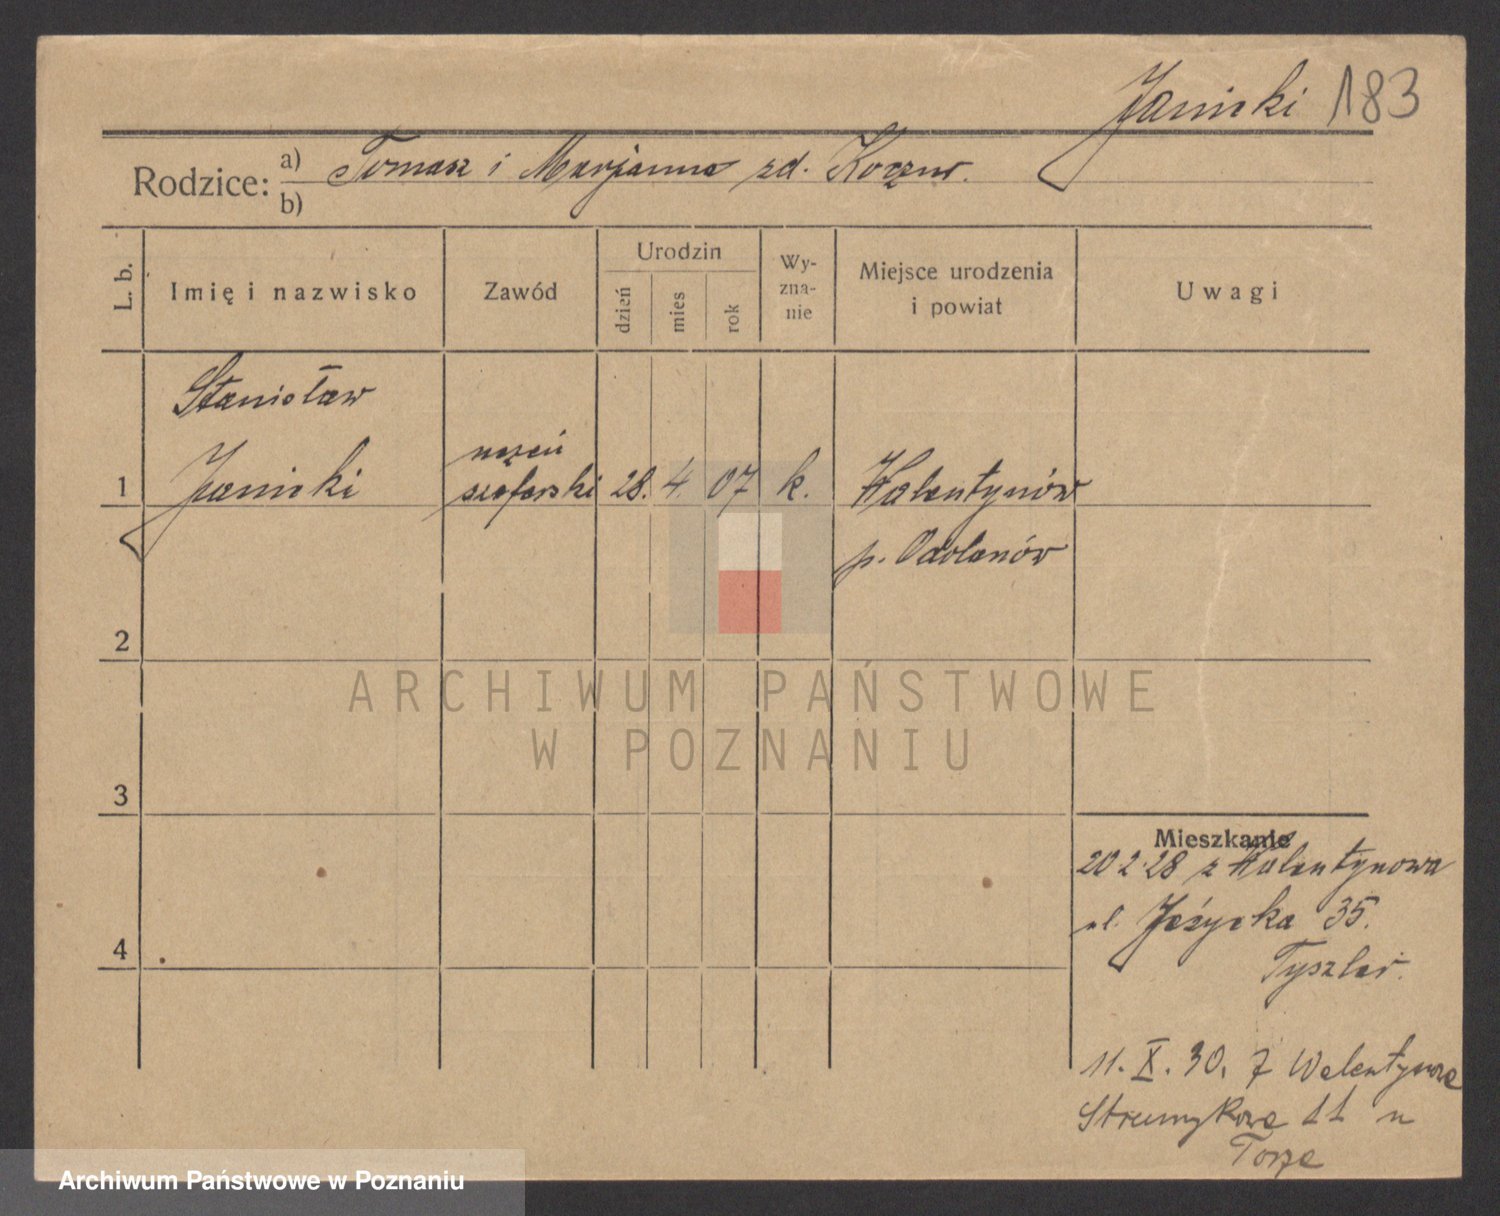 Janicki 183
Rodzice: a) Tomasz i Marjanna zd.
b)
L. b.
Imię i nazwisko
Zawód
Urodzin
dzień
mies
rok
Wy-
zna-
nie
Miejsce urodzenia
i powiat
Uwagi
Stanisław
uczeń
1 Janicki szoferski 28. 4. 07 k. Walentynów
p. Odolanów
2
3
4
ARCHIWUM PAŃSTWOWE
W POZNANIU
Mieszkanie
20 2.28 z Walentynowa
ul. Jeżycka 35.
11. X. 30. z Walentynowa
Strumykowa 11 u
Archiwum Państwowe w Poznaniu